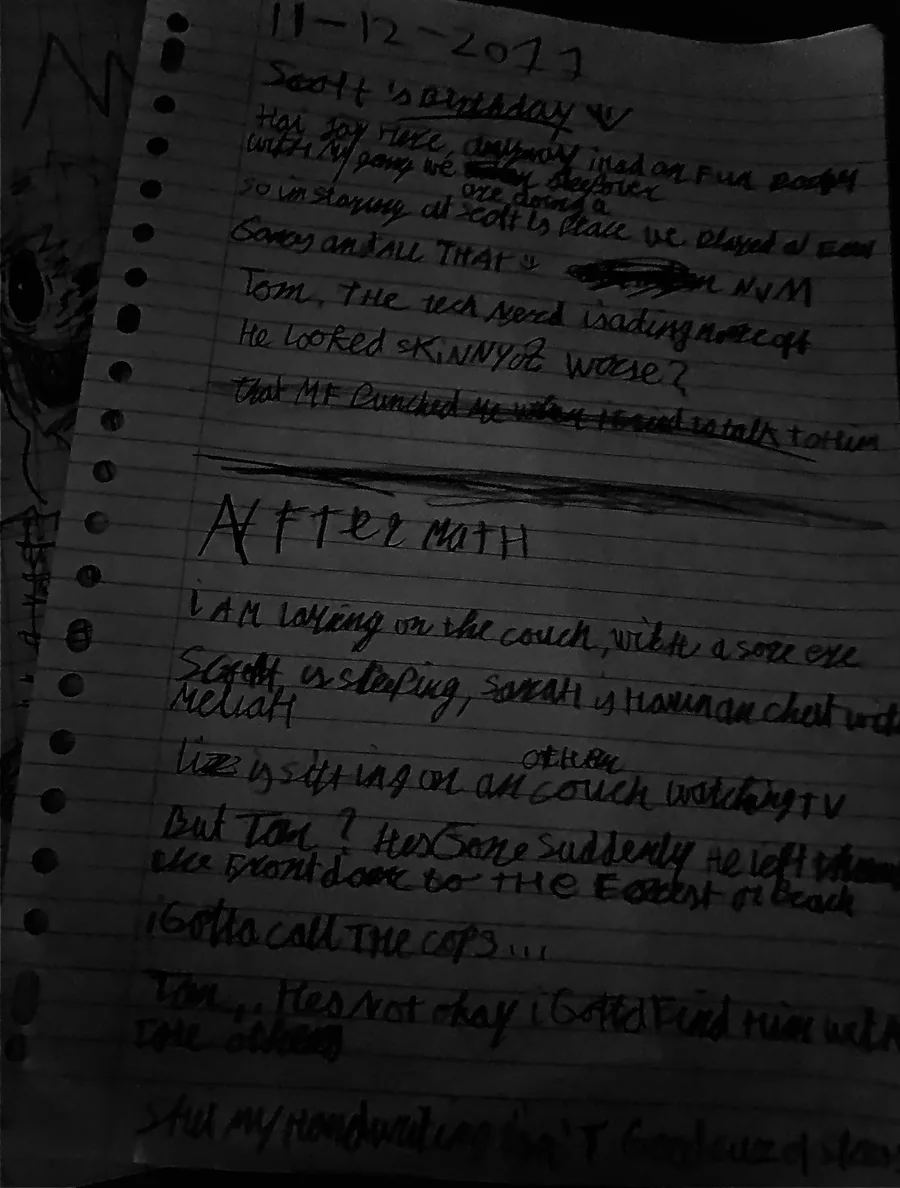 11-12-2077
Scott's Birthday
Hai, Jay Here, anyway i had an Fun
with My gang we sleepover
are doing a
so im staying at Scott is Place we Played
Games and ALL THAT NVM
Tom, THE tech Nerd
He looked SKiNNY worse?
that MF Punched Me when i tried to talk to Him
AFTERMATH
i AM laying on the couch, with a sore eye
Scott is sleeping, SaraH is Havin an chat with
MeliaH
other
Lizz is sitting on an couch watching TV
But Tom? Hes Gone Suddenly He left
the Front door to THE Forest or Beach
i Gotta call THE cops...
Tom... Hes Not okay i Gotta Find Him with
THe others
My Handwriting isn'T Good